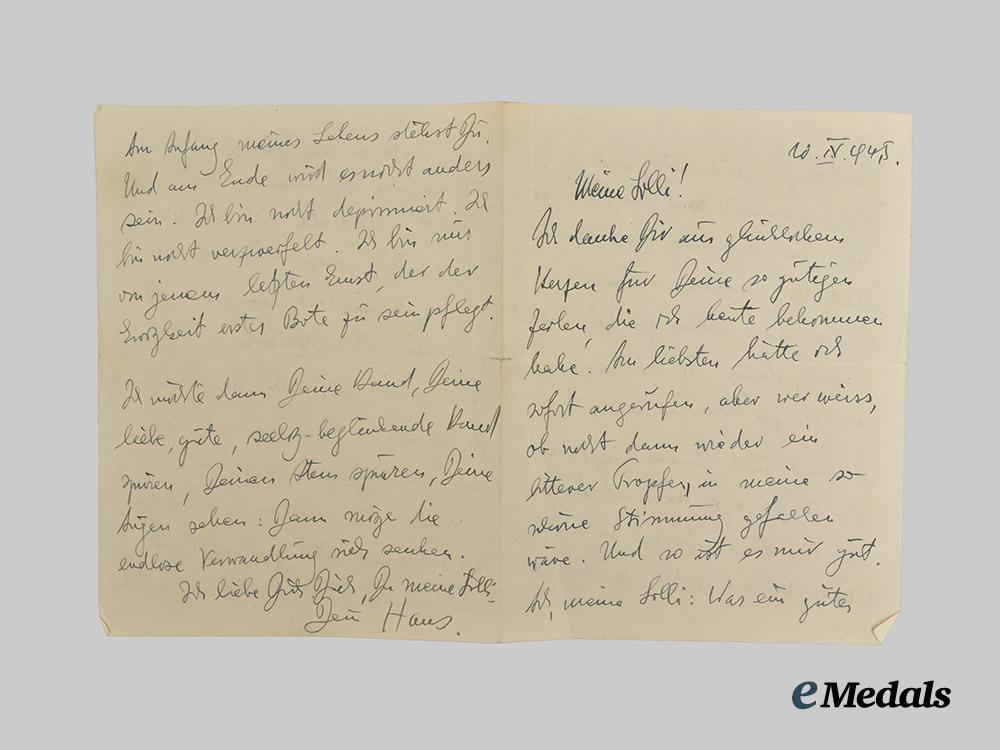 10.IV.1945.
Meine Lolli!
Ich danke Dir aus glücklichem
Herzen für Deine so gütigen
Zeilen, die ich heute bekommen
habe. Am liebsten hätte ich
sofort angerufen, aber wer weiss,
ob nicht dann wieder ein
bitterer Tropfen, in meine so
schöne Stimmung gefallen
wäre. Und so ist es mir gut.
Ach, meine Lolli: Was ein gutes
Am Anfang meines Lebens stehst Du.
Und am Ende wird es nicht anders
sein. Ich bin nicht deprimiert. Ich
bin nicht verzweifelt. Ich bin nur
von jenem letzten Ernst, der der
Ewigkeit erster Bote zu sein pflegt.
Ich möchte dann Deine Hand, Deine
liebe, gute, seelig-beglückende Hand
spüren, Deinen Atem spüren, Deine
Augen sehen: Dann möge die
endlose Verwandlung sich senken.
Ich liebe Dich Dich, Du meine Lolli.
Dein Hans.
eMedals